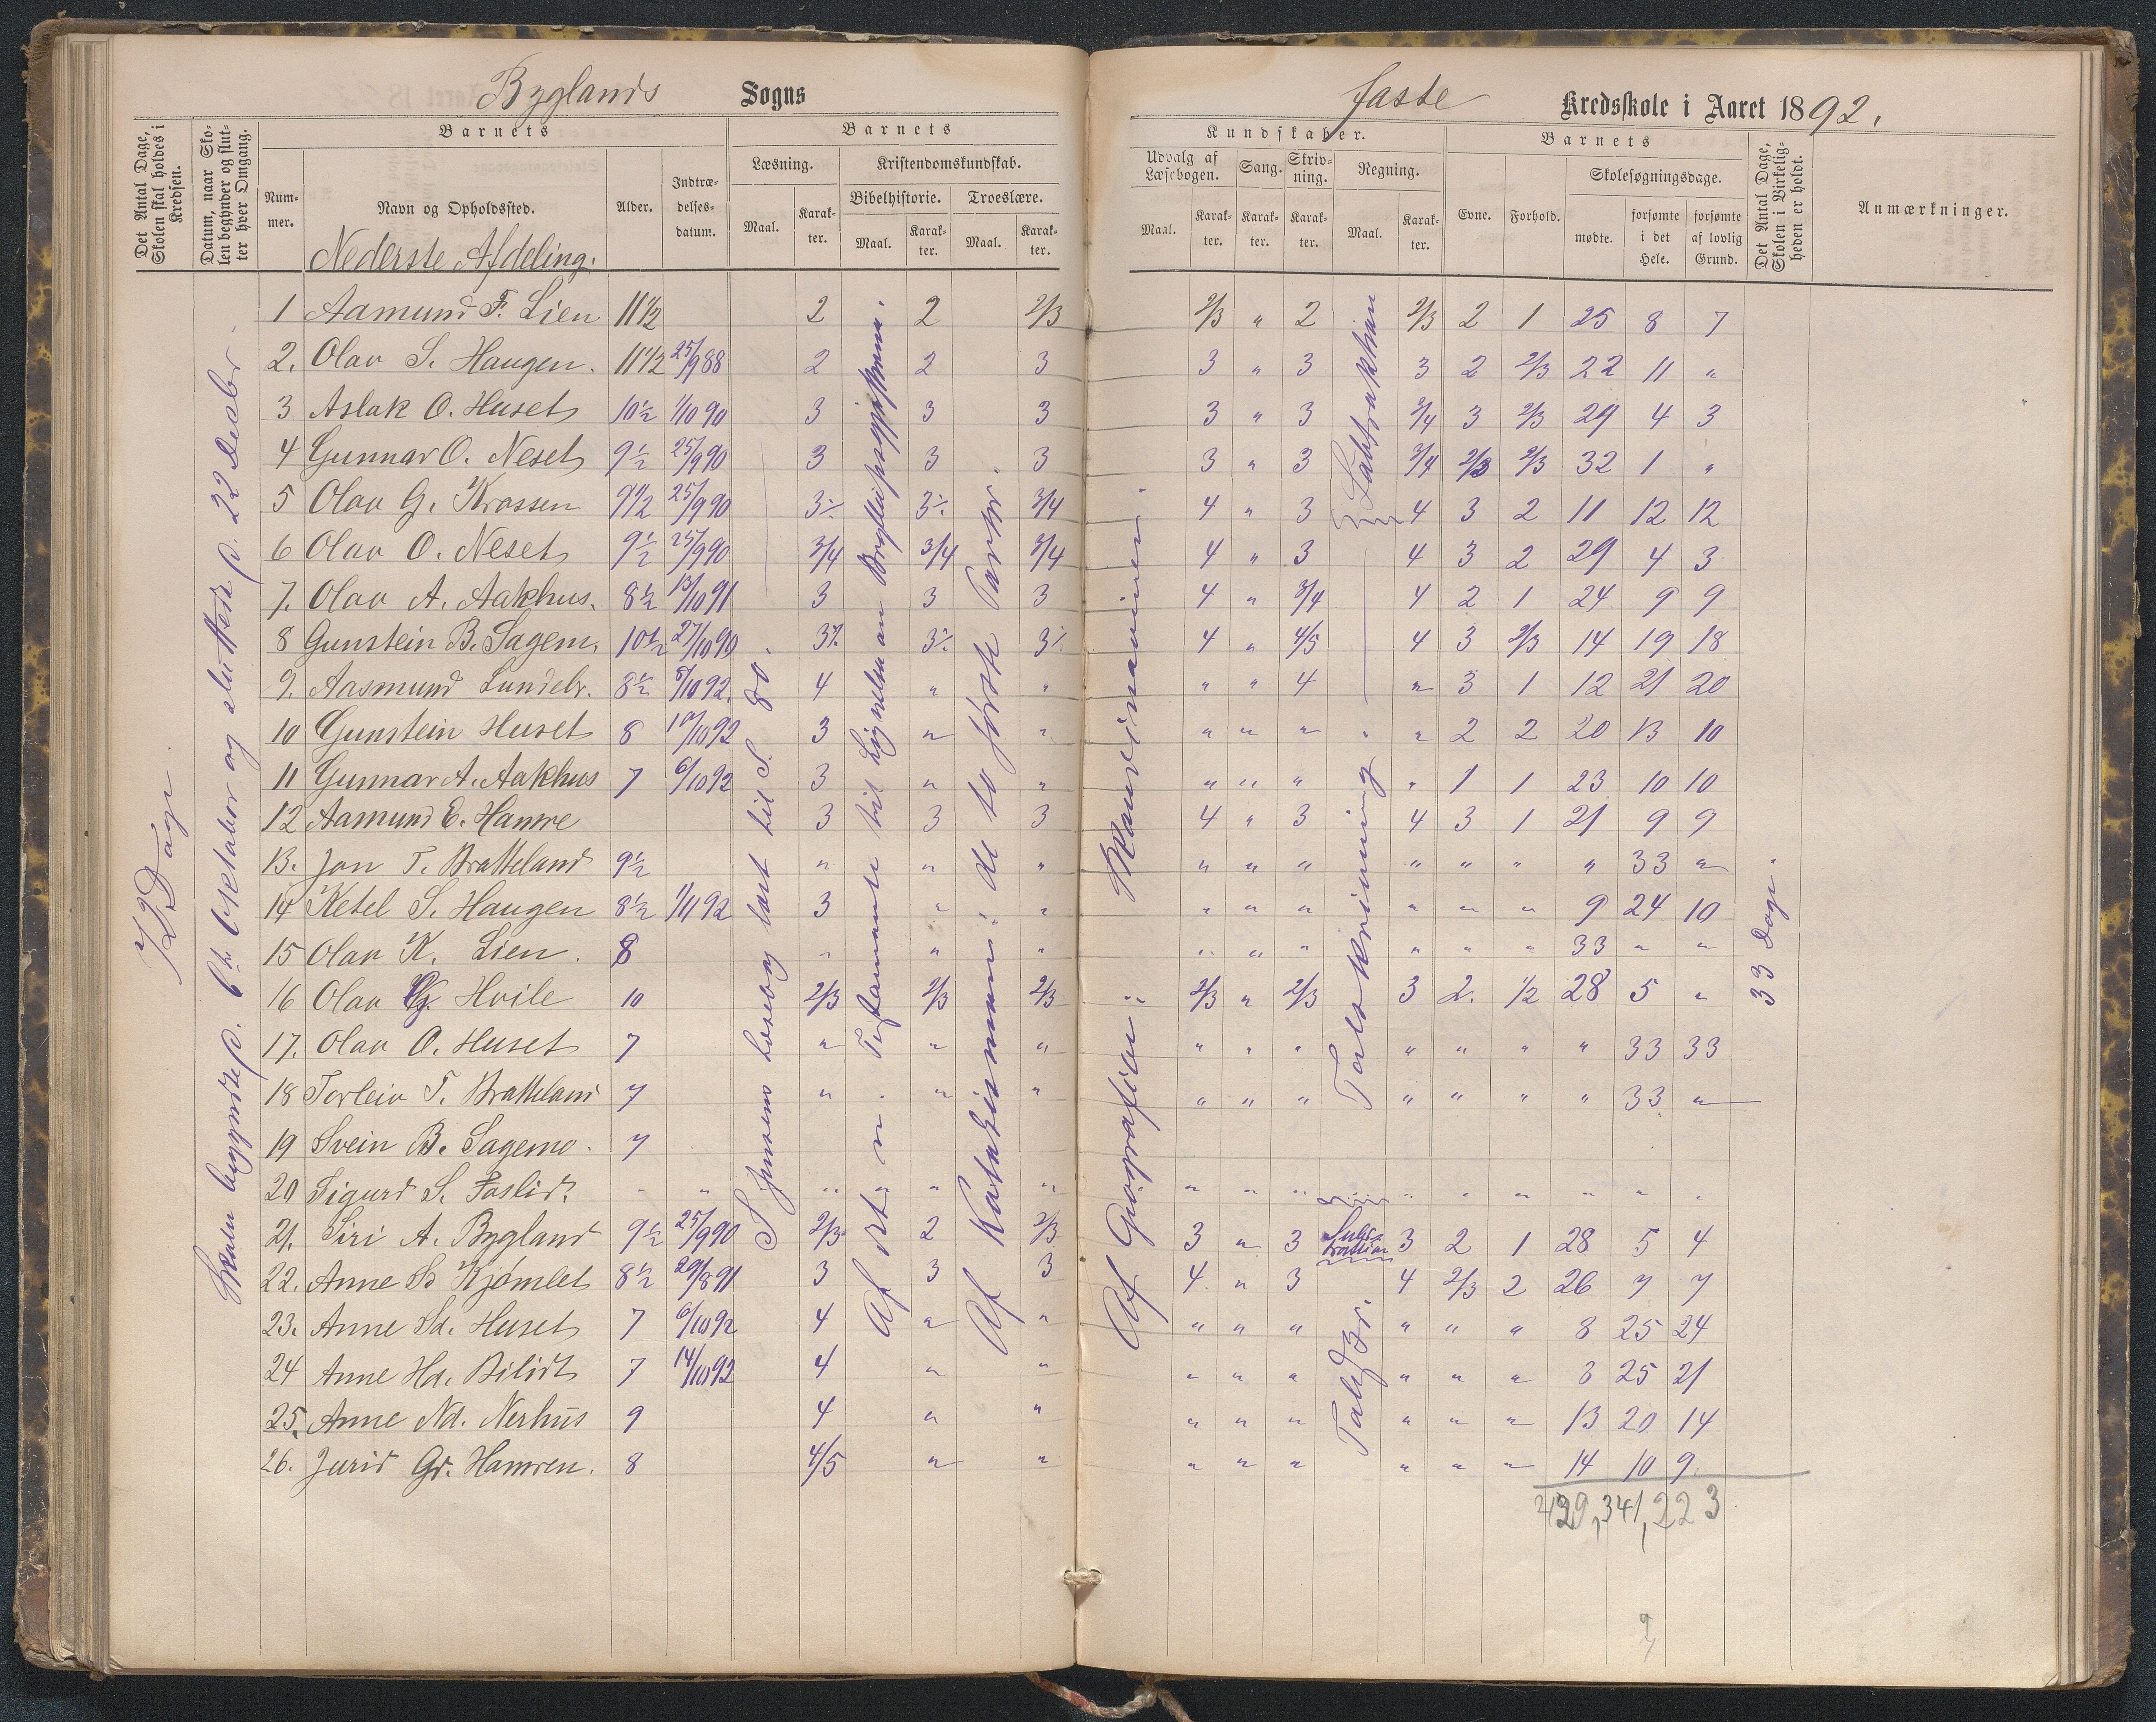 Byglands Sogns
faste Kredsskole i Aaret 1892.
Det Antal Dage, Skolen skal holdes i Kredsen.
Datum, naar Skolen begynder og slutter hver Omgang.
Barnets
Nummer.
Navn og Opholdssted.
Nederste Afdeling.
Alder.
Indtrædelsesdatum.
Barnets
Læsning.
Maal.
Karakter.
Kristendomskundskab.
Bibelhistorie.
Maal.
Karakter.
Troeslære.
Maal.
Karakter.
Kundskaber.
Udvalg af Læsebogen.
Maal.
Karakter.
Sang.
Karakter.
Skrivning.
Karakter.
Regning.
Maal.
Karakter.
Barnets
Evne.
Forhold.
Skolesøgningsdage.
mødte.
forsømte i det Hele.
forsømte af lovlig Grund.
Det Antal Dage, Skolen i Virkeligheden er holdt.
Anmærkninger.
Dage
Skolen begyndte p. 6te Oktober og sluttede p. 22 Decbr
S Jensens Læsebog læst til S. 80.
Af det n. Testamente til Lignelsen om
Af Katekismen: de to første Parter.
Af Geografien: Skandinavien
Subtraktion
Talskrivning
Subtraktion
33 Dage.
1 Aamund F. Lien 11 1/2 2 2 2/3 2/3 " 2 2/3 2 1 25 8 7
2. Olav S. Haugen. 11 1/2 25/9 88 2 2 3 3 " 3 3 2 2/3 22 11 "
3 Aslak O. Huset 10 1/2 1/10 90 3 3 3 3 " 3 3/4 3 2/3 29 4 3
4 Gunnar O. Neset 9 1/2 25/9 90 3 3 3 3 " 3 3/4 2/3 2/3 32 1 "
5 Olav G. Krossen 9 1/2 25/9 90 3÷ 3÷ 3/4 4 " 3 4 3 2 11 12 12
6 Olav O. Neset 9 1/2 25/9 90 3/4 3/4 3/4 4 " 3 4 3 2 29 4 3
7. Olav A. Aakhus. 8 1/2 13/10 91 3 3 3 4 " 3/4 4 2 1 24 9 9
8 Gunstein B. Sagem. 10 1/2 27/10 90 3÷ 3÷ 3÷ 4 " 4/5 4 3 2/3 14 19 18
9. Aasmund Lundebr. 8 1/2 8/10 92. 4 " " " " 4 " 3 1 12 21 20
10 Gunstein Huset 8 10/10 92 3 " " " " " " " 2 2 20 13 10
11 Gunnar A. Aakhus 7 6/10 92 3 " " " " " " 1 1 23 10 10
12 Aamund E. Hamre 3 3 3 4 " 3 4 3 1 21 9 9
13. Jon T. Bratteland 9 1/2 " " " " " " " " " " 33 "
14 Ketel S. Haugen 8 1/2 1/11 92 3 " " " " " " " " 9 24 10
15 Olav K. Lien. 8 " " " " " " " " " 33 " "
16 Olav G. Hvile 10 2/3 2/3 2/3 " 2/3 " 2/3 3 2. 1/2 28 5 "
17. Olav O. Huset 7 " " " " " " " " " " 33 33
18 Torleiv T. Bratteland 7 " " " " " " " " " " 33 "
19 Svein B. Sagemo. 7
20 Sigurd S. Foslid. " " " " " " " " " " " " " " "
21. Siri A. Bygland 9 1/2 25/9 90 2/3 2 2/3 3 " 3 3 2 1 28 5 4
22. Anne Kjømlet 8 1/2 29/8 91 3 3 3 4. " 3 4 2/3 2 26 7 7
23. Anne Sd. Huset 7 6/10 92 4 " " " " " " " " 8 25 24
24 Anne Hd. Bilidt 7 14/10 92 4 " " " " " " " " 8 25 21
25. Anne Nd. Nerhus 9 4 " " " " " " " " 13 20 14
26. Jurid Gd. Hamren. 8 4/5 " " " " " " " " 14 10 9
341, 223